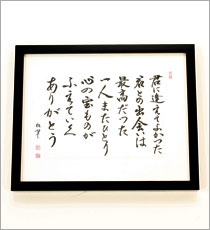 君に逢えてよかった
君との出会いは
最高だった
一人またひとり
心の宝ものが
ふえていく
ありがとう